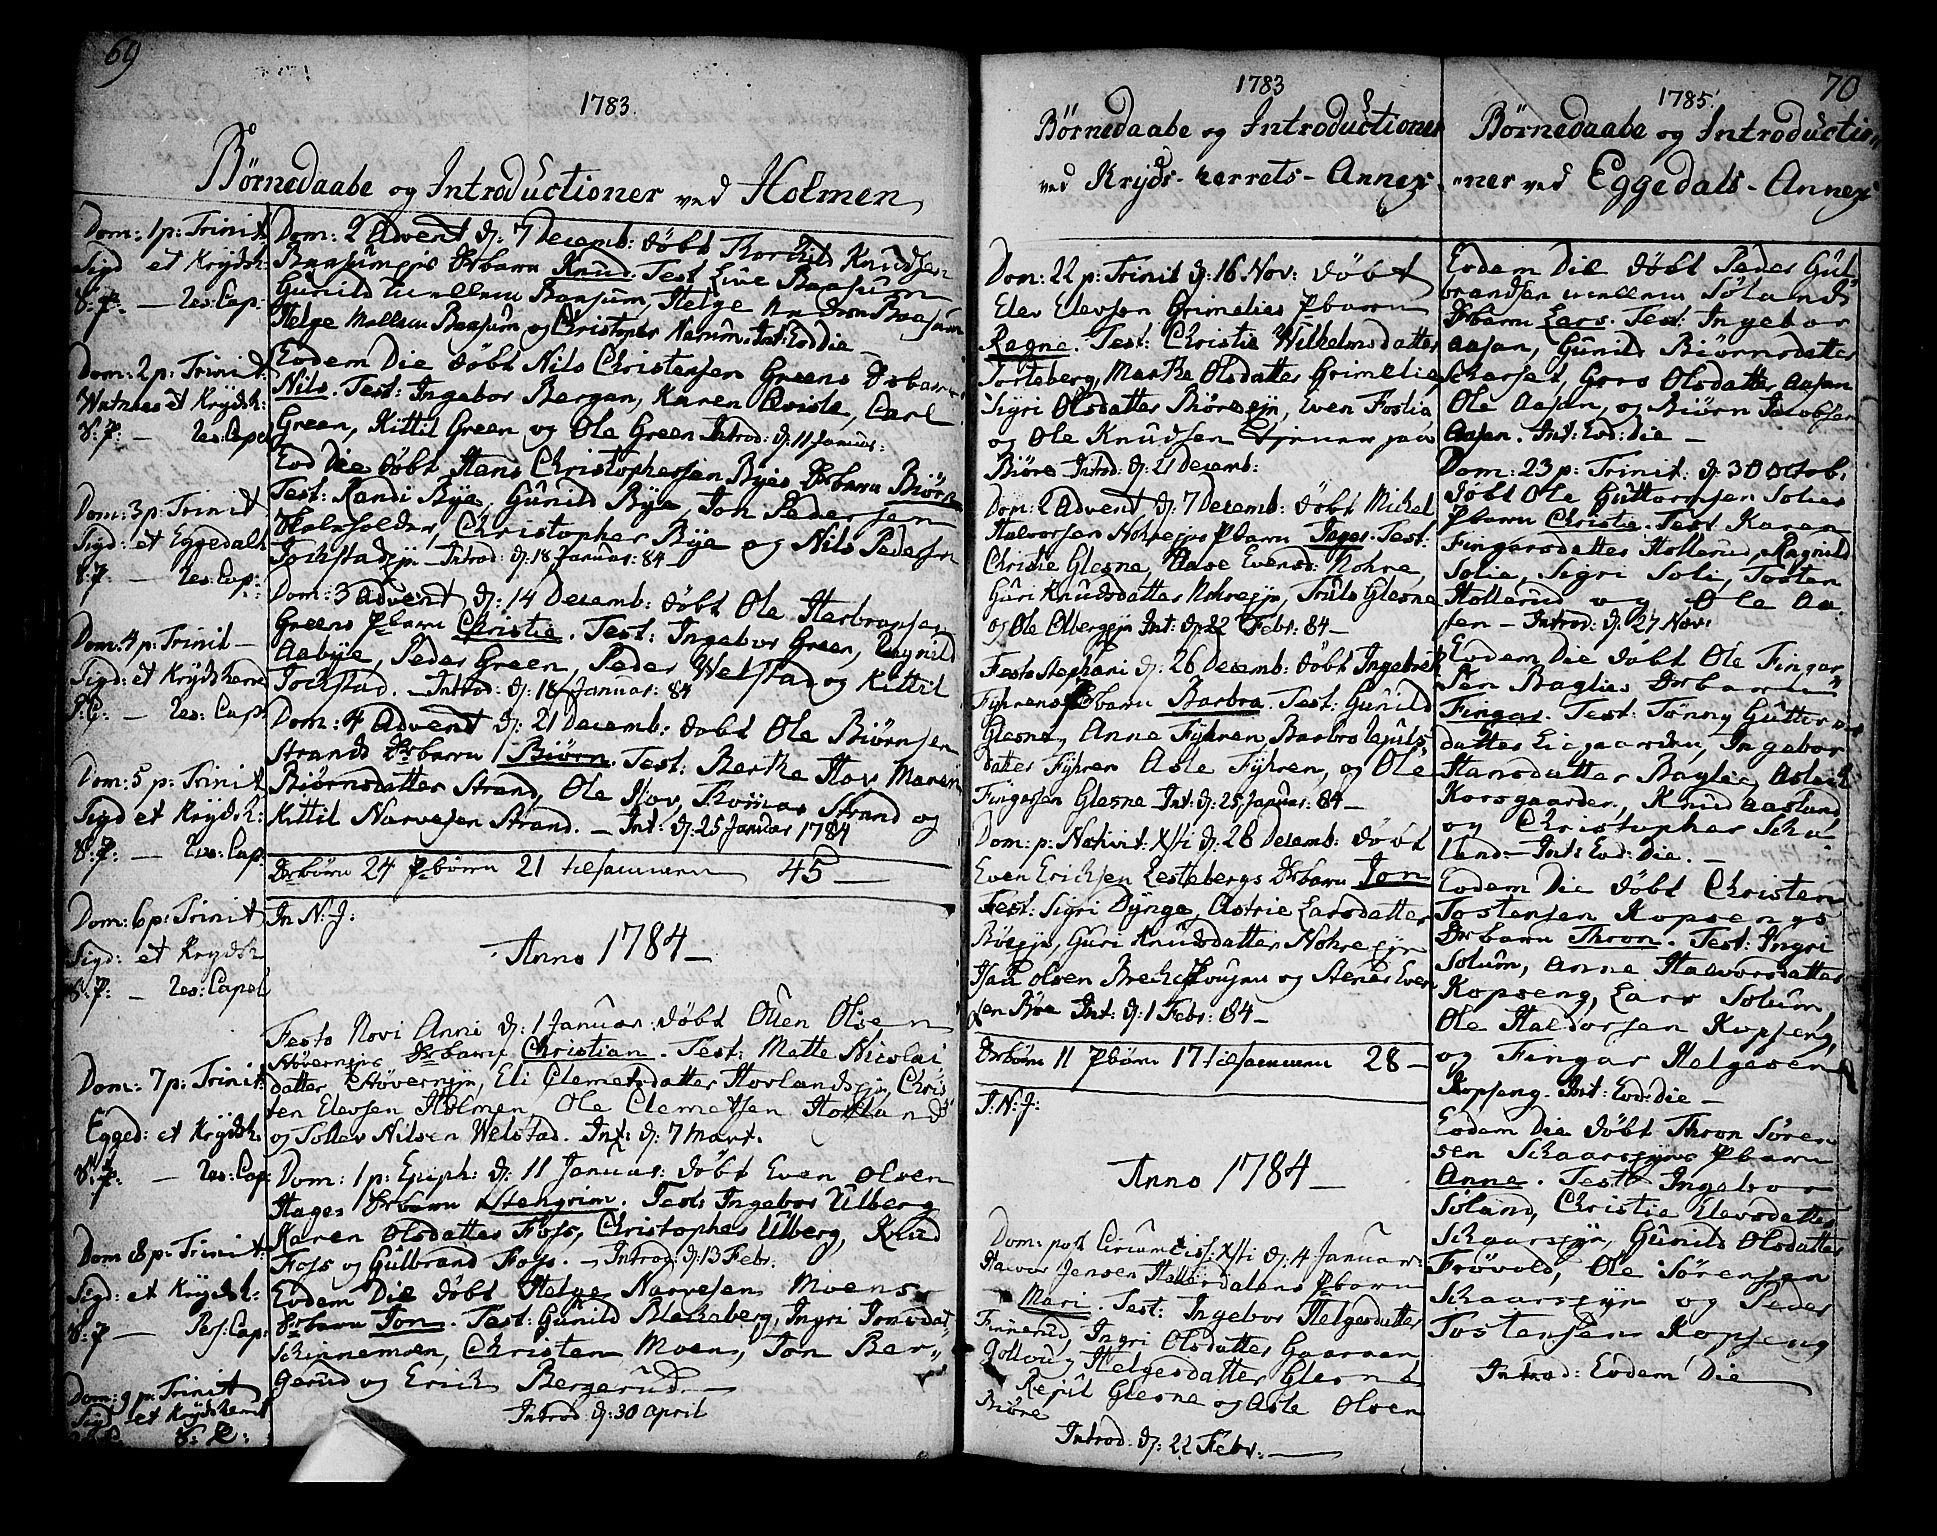 69
1783.
Børnedaabe og Introductioner ved Holmen
Dom: 1 p: Trinit:
Sigd et Krydsh:
V: P: — Res: Cap:
Dom: 2 p: Trinit:
Watnaes et Krydsh:
V: P: — Res: Capel
Dom: 3 p: Trinit
Sigd: et Eggedahl
V: P: — Res: Cap:
Dom: 4 p: Trinit —
Sigd: et Krydsherre
— Res: Cap:
Dom: 5 p: Trinit
Sigd et Krydsh:
V: P: — Res: Cap:
Dom: 6 p: Trinit
Sigd: et Krydsh
V: P: — Res: Capel
Dom: 7 p: Trinit:
Egged: et Krydsh.
V: P: — Res: Cap
Dom 8 p: Trinit:
Sigd: et Krydsh:
V: P — Res: Cap:
Dom: 9 p: Trinit
Sigd et Krydsherret
Dom: 2 Advent d: 7 Decemb: døbt Thorkild Knudsen
Baasumeies Ds barn Knud. Test Live Baasum
Gunild Baasum, Helge Baasum
Helge Mellem Baasum og Christopher Narum. Int: Eod die
Eodem Die døbt Nils Christensen Greens Ds barn
Nils. Test: Ingebor Bergan, Karen Carl
Green, Kittil Green og Ole Green Introd: d: 11 Januar:
Eod Die døbt Hans Christophersen Byes Ds barn Biørn
Test: Randi Bye, Gunild Bye, Jon Pedersen
Christopher Bye og Nils Pedersen
Introd: d: 18 Januar: 84 —
Dom: 3 Advent d: 14 Decemb: døbt Ole Herbransen
Greens P barn Christie. Test: Ingebor Green, Ragnild
Aabye, Peder Green, Peder Welstad og Kittil
Tockstad. — Introd: d: 18 Januar: 84
Dom: 4 Advent d: 21 Decemb: døbt Ole Biørnsen
Strands Ds barn Biørn. Test: Berthe Hov Maren
Biørnsdatter Strand, Ole Hov, Thomas Strand og
Kittil Narvesen Strand. — Int: d: 25 Januar 1784
Ds børn 24 P børn 21 tilsammen 45 —
In N: J:
Anno 1784 —
Festo Novi Anni d: 1 Januar: døbt Ouen Olsen
Støvernies Ds barn Christian. Test: Mette Nicolai
datter Støverneyn, Eli Clemetsdatter Hovlandseyn Chris
ten Elevsen Holmen, Ole Clemetsen Hovland
og Sollev Nilsen Welstad. Int: d: 7 Mart.
Dom: 1 p: Epiph: d: 11 Januar: døbt Even Olsen
Hages Ds barn Stengrim. Test: Ingebor Ulberg
Karen Olsdatter Foss, Christopher Ulberg, Knud
Foss og Gulbrand Foss. — Introd: d: 13 Febr:
Eodem Die døbt Helge Narvesen Moens
Ds barn Jon. Test: Gunild Bleckeberg, Ingri Jonsdat
Schinnemoen, Christen Moen, Jon Ber-
gerud og Erich Bergerud —
Introd: d: 30 April
1783
Børnedaabe og Introductioner
ved Kryds-herrets-Annex
Dom: 22 p: Trinit d: 16 Nov: døbt
Elev Elevsen Grimelies P barn
Ragne. Test: Christie Wilhelmsdatter
Torteberg, Marthe Olsdatter Grimelie
Sigri Olsdatter Børeseyn, Even Foslia
og Ole Knudsen
Biøre Introd: d: 21 Decemb:
Dom: 2 Advent d: 7 Decemb: døbt Michel
Halvorsen Nohreejes P barn Inger. Test:
Christie Glesne, Aase Evensd: Nohre,
Guri Knudsdatter Nohreejn, Truls Glesne
og Ole Olbergejn Int: d: 22 Febr: 84 —
Festo Stephani d: 26 Decemb: døbt Ingebret
Fyhrens P barn Barbra. Test: Gunild
Glesne, Anne Fyhren, Barbro
datter Fyhren Asle Fyhren, og Ole
Fingarsen Glesne Int: d: 25 Januar: 84 —
Dom: p: Nativit: Xsti d: 28 Decemb: døbt
Even Ericksen Lesteberg Ds barn Jon
Test: Sigri Dynge, Astrie Larsdatter
Børejn, Guri Knudsdatter Nohreejn
Olsen og Stener Even
sen Bøe Int: d: 1 Febr: 84 —
Ds børn 11 P børn 17 tilsammen 28 —
I: N: J:
Anno 1784 —
Dom: post Circumciss: Xsti d: 4 Januar:
Halvor Jensen P barn
Mari. Test: Ingebor Helgesdatter
Finnerud, Ingri Olsdatter Gaarnen,
Helgesdatter Glesne,
Repul Glesne og Asle Olsen
Biøre
Introd: d: 22 Febr: —
70
1785.
Børnedaabe og Introductio-
ner ved Eggedals-Annex
Eodem Die døbt Peder Gul
brandsen mellem Sølands
Ds barn Lars. Test: Ingebor
Aasan, Gunild Biørnsdatter
Goro Olsdatter Aasan
Ole Aasan, og Biørn Jacobsen
Aasan. Int: Eod: die —
Dom: 23 p: Trinit: d: 30 Octob:
døbt Ole Guttormsen Solies
P barn Christie. Test. Karen
Fingarsdatter Hollerud, Ragnild
Solie, Sigri Soli, Tosten
Hollerud og Ole Aa
sen — Introd: d: 27 Nov:
Eodem Die døbt Ole Fingar
sen Baglies Ds barn
Fingar. Test: Tønny Guttorms
datter Eiegaarden, Ingebor
Hansdatter Baglie, Aslack
Korsgaarden, Knud Aasland
og Christopher Schal
land — Int: Eod: Die. —
Eodem Die døbt Christen
Tostensen Kopsengs
Ds barn Thron. Test: Ingri
Solum, Anne Halvorsdatter
Kopseng, Lars Solum,
Ole Haldorsen Kopseng,
og Fingar Helgesen
Kopseng. Int: Eod: die —
Eodem Die døbt Thron Søren
sen Skaarsejns P barn
Anne. Test: Ingebor
Søland, Christie Elevsdatter
Schaarsejn, Gunild Olsdatter
Frøvold, Ole Sørensen
Schaarsejn og Peder
Tostensen Kopseng
Introd: Eodem Die